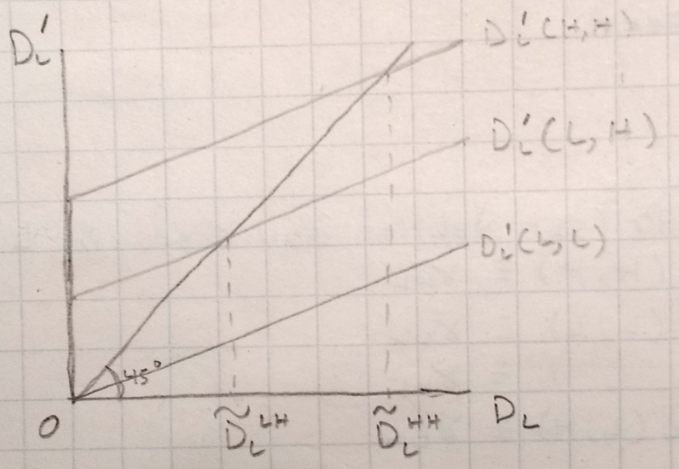 D_L'
D_L'(H,H)
D_L'(L,H)
D_L'(L,L)
45°
O
D̃_L^LH
D̃_L^HH
D_L